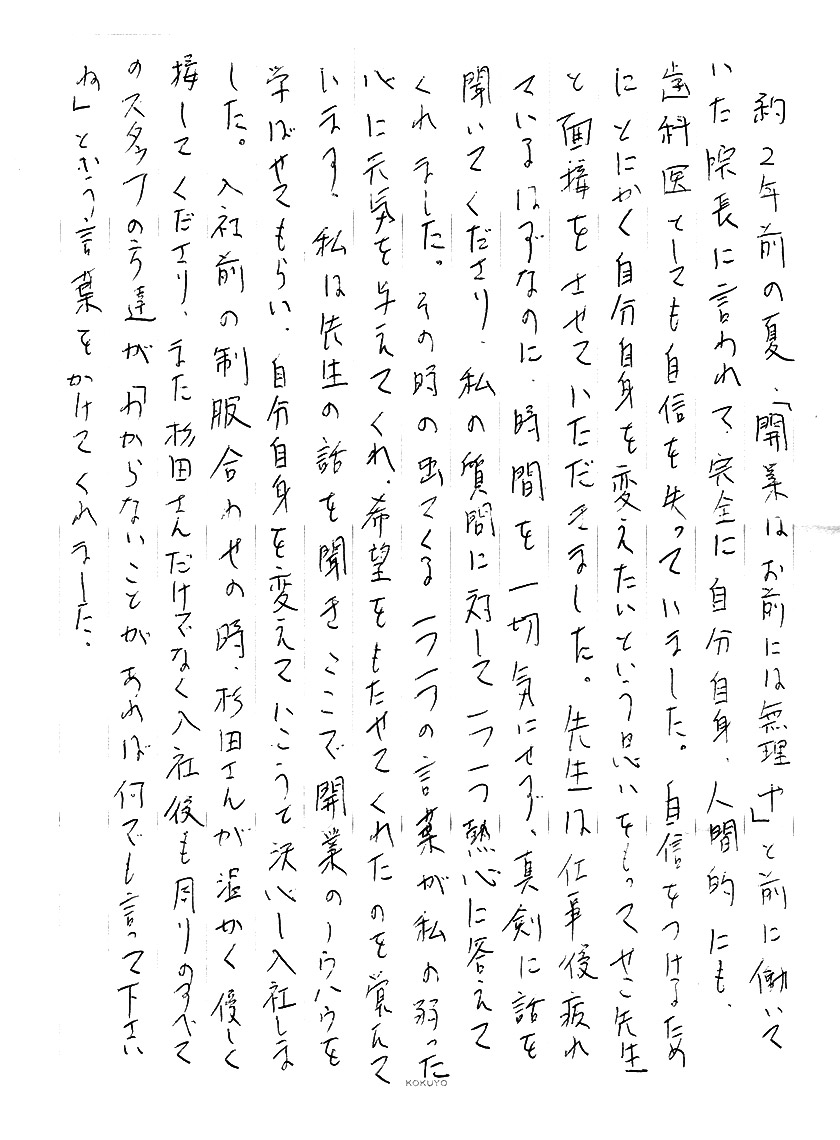 約２年前の夏、「開業はお前には無理や」と前に働いて
いた院長に言われて、完全に自分自身、人間的にも、
歯科医としても自信を失っていました。自信をつけるため
にとにかく自分自身を変えたいという思いをもってせこ先生
と面接をさせていただきました。先生は仕事後疲れ
ているはずなのに、時間を一切気にせず、真剣に話を
聞いてくださり、私の質問に対して一つ一つ熱心に答えて
くれました。その時の出てくる一つ一つの言葉が私の弱った
心に元気を与えてくれ、希望をもたせてくれたのを覚えて
います。私は先生の話を聞きここで開業のノウハウを
学ばせてもらい、自分自身を変えていこうと決心し入社しま
した。入社前の制服合わせの時、杉田さんが温かく優しく
接してくださり、また杉田さんだけでなく入社後も周りのすべて
のスタッフの方達が「わからないことがあれば何でも言って下さい
ね」という言葉をかけてくれました。
KOKUYO